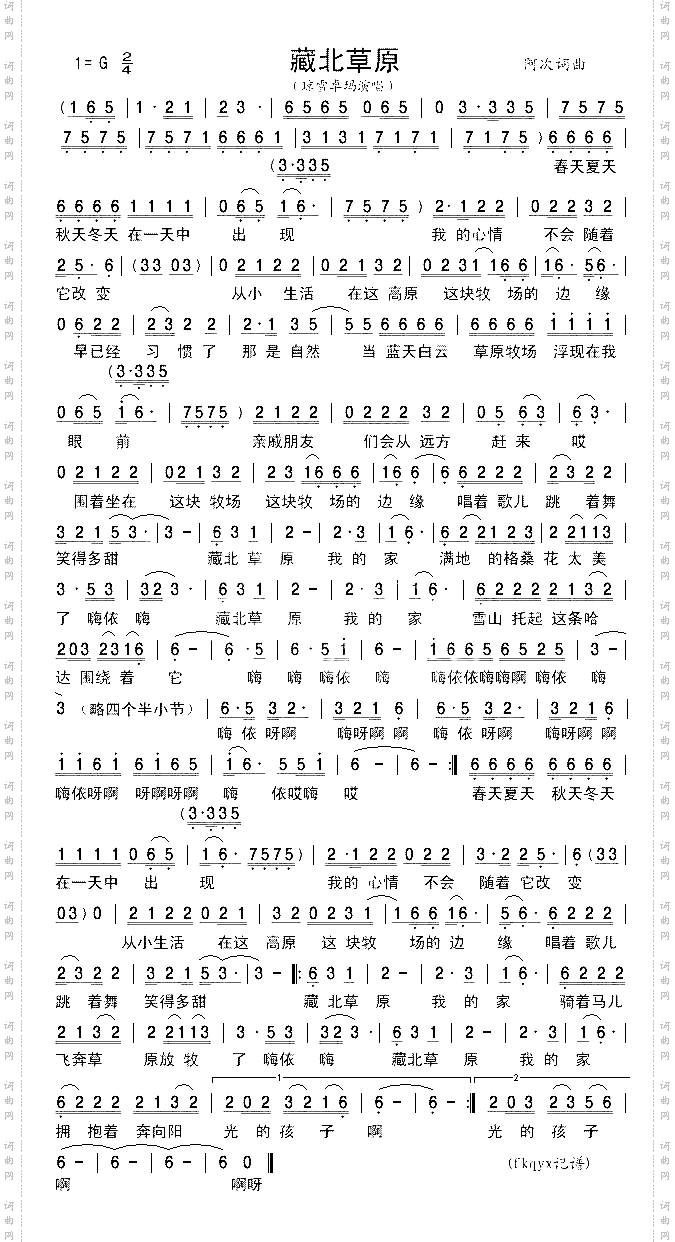 藏北草原
1=G 2/4
阿次词曲
(琼雪卓玛演唱)
(1 6 5 | 1·2 1 | 2 3· | 6 5 6 5 0 6 5 | 0 3·3 3 5 | 7 5 7 5
7 5 7 5 | 7 5 7 1 6 6 6 1 | 3 1 3 1 7 1 7 1 | 7 5 7 5 ) 6 6 6 6 |
(3·3 3 5
春天夏天
6 6 6 6 1 1 1 1 | 0 6 5 1 6· | 7 5 7 5 ) 2·1 2 2 | 0 2 2 3 2 |
秋天冬天 在一天中 出 现 我 的心情 不会 随着
2 5· 6 | (3 3 0 3) | 0 2 1 2 2 | 0 2 1 2 2 | 0 2 3 1 1 6 6 | 1 6· 5 6· |
它改 变 从小 生活 在这 高原 这块牧 场的 边 缘
0 6 2 2 | 2 3 2 2 | 2·3 1 5 | 5 5 6 6 6 6 | 6 6 6 6 1 1 1 1 |
早已经 习 惯了 那是自然 当 蓝天白云 草原牧场 浮现在我
(3·3 3 5
0 6 5 1 6· | 7 5 7 5 ) | 2 1 2 2 | 0 2 2 2 3 2 | 0 5 6 3 | 6 3· |
眼 前 亲戚朋友 们会从 远方 赶 来 哎
0 2 1 2 2 | 0 2 1 3 2 | 2 3 1 6 6 6 | 1 6 6 6 | 6 2 2 2 | 2 3 2 2 |
围着坐在 这块 牧场 这块牧 场的 边 缘 唱着 歌儿 跳 着舞
3 2 1 5 3· | 3 - | 6 3 1 | 2 - | 2·3 | 1 6· | 6 2 2 1 2 3 | 2 2 1 1 3 |
笑得多甜 藏北 草 原 我 的 家 满地 的格桑 花 太 美
3·5 3 | 3 2 3· | 6 3 1 | 2 - | 2·3 | 1 6· | 6 2 2 2 2 1 3 2 |
了 嗨依 嗨 藏北草 原 我 的 家 雪山 托起 这条哈
2 0 3 2 3 1 6 | 6 - | 6·5 | 6·5 1 | 6 - | 1 6 6 5 6 5 2 5 |
达 围绕 着 它 嗨 嗨 嗨依 嗨 嗨依依嗨嗨啊 嗨依 嗨
3 (略四个半小节) | 6·5 3 2 | 3 2 1 6 | 6·5 3 2· | 3 2 1 6 |
嗨 依 呀啊 嗨呀啊 啊 嗨 依 呀啊 嗨呀啊 啊
1 1 6 1 6 1 6 5 | 1 6· 5 5 1 | 6 - | 6 - :‖ 6 6 6 6 6 6 6 6 |
嗨依呀啊 呀啊呀啊 嗨 依哎嗨 哎 春天夏天 秋天冬天
(3·3 3 5
1 1 1 1 0 6 5 | 1 6· 7 5 7 5 ) | 2·1 2 2 0 2 2 | 3·2 2 5· | 6 (3 3
在一天中 出 现 我的 心情 不会 随着 它改 变
0 3) 0 | 2 1 2 2 0 2 1 | 3 2 0 2 3 1 | 1 6 6 1 6· | 5 6· 6 2 2 2 |
从小生活 在这 高原 这 块牧 场的 边 缘 唱着 歌儿
2 3 2 2 | 3 2 1 5 3· | 3 - ‖: 6 3 1 | 2 - | 2·3 | 1 6· | 6 2 2 2 |
跳 着舞 笑得多甜 藏 北草 原 我 的 家 骑着马儿
2 1 3 2 | 2 2 1 1 3 | 3·5 3 | 3 2 3· | 6 3 1 | 2 - | 2·3 | 1 6· |
飞奔草 原放 牧 了 嗨依 嗨 藏北草 原 我 的 家
1 2
6 2 2 2 2 1 3 2 | 2 0 2 3 2 1 6 | 6 - | 6 - :‖ 2 0 3 2 3 5 6 |
拥 抱着 奔向阳 光 的 孩 子 啊 光 的 孩 子
6 - | 6 - | 6 - | 6 0 ‖
(fkqyx记谱)
啊 啊呀
词曲网